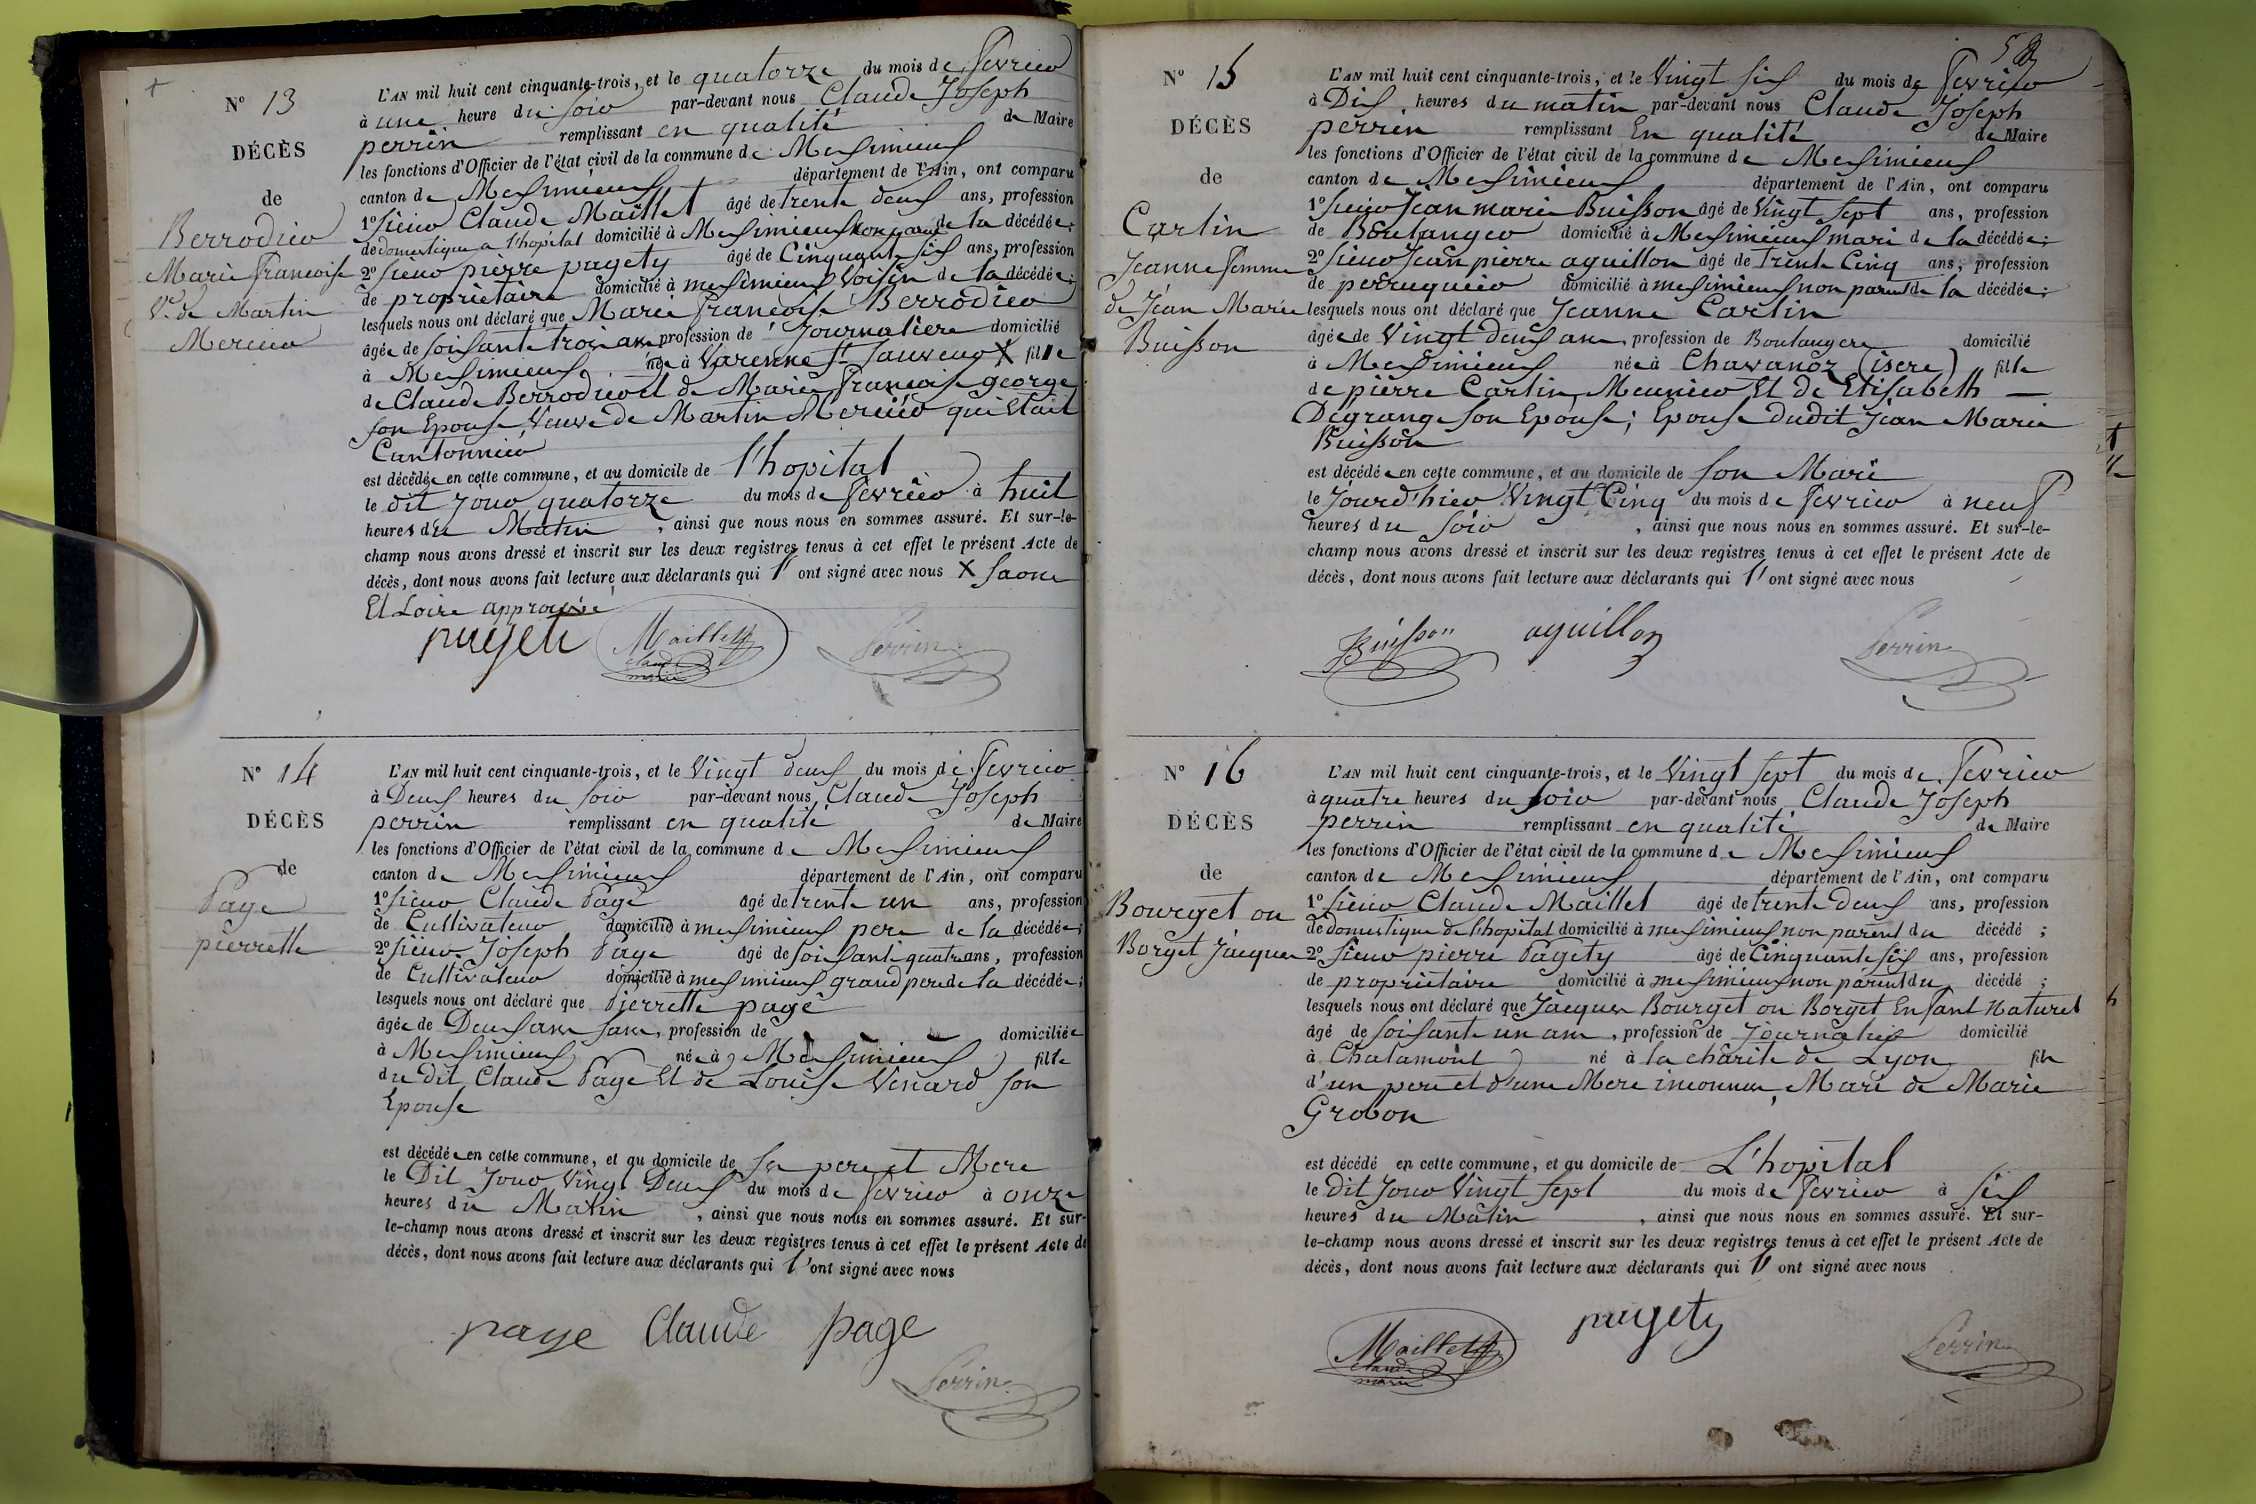 N° 13
DÉCÈS
de
Berrodier
Marie francoise
Ve de Martin
Mercier
L'AN mil huit cent cinquante-trois, et le quatorze du mois de fevrier
à une heure du soir par-devant nous Claude Joseph
perrin remplissant en qualité de Maire
les fonctions d'Officier de l'état civil de la commune de Meximieux
canton de Meximieux département de l'Ain, ont comparu
1° sieur Claude Maillet âgé de trente deux ans, profession
de domestique a l'hopital domicilié à Meximieux non parent de la décédée;
2° sieur pierre pagety âgé de Cinquante six ans, profession
de propriétaire domicilié à meximieux voisin de la décédée;
lesquels nous ont déclaré que Marie francoise Berrodier
âgée de soixante trois ans profession de Journaliere domicilié
à Meximieux née à Varenne St Sauveur X fille
de Claude Berrodier et de Marie francoise george
son Epouse, Veuve de Martin Mercier qui Etait
Cantonnier
est décédée en cette commune, et au domicile de l'hopital
le dit jour quatorze du mois de fevrier à huit
heures du Matin, ainsi que nous nous en sommes assuré. Et sur-le-
champ nous avons dressé et inscrit sur les deux registres tenus à cet effet le présent Acte de
décès, dont nous avons fait lecture aux déclarants qui l' ont signé avec nous X Saone
Et Loire approuvé
pageti Maillet claude marie Perrin
N° 14
DÉCÈS
de
Page
pierrette
L'AN mil huit cent cinquante-trois, et le Vingt deux du mois de fevrier
à Deux heures du soir par-devant nous Claude Joseph
perrin remplissant en qualité de Maire
les fonctions d'Officier de l'état civil de la commune de Meximieux
canton de Meximieux département de l'Ain, ont comparu
1° sieur Claude Page âgé de trente un ans, profession
de Cultivateur domicilié à meximieux pere de la décédée;
2° sieur Joseph Page âgé de soixante quatre ans, profession
de Cultivateur domicilié à meximieux grand pere de la décédée;
lesquels nous ont déclaré que Pierrette page
âgée de Deux ans sans, profession de domiciliée
à Meximieux née à Meximieux fille
du dit Claude Page Et de Louise Venard son
Epouse
est décédée en cette commune, et au domicile de ses pere et Mere
le Dit Jour Vingt Deux du mois de fevrier à onze
heures du Matin, ainsi que nous nous en sommes assuré. Et sur-
le-champ nous avons dressé et inscrit sur les deux registres tenus à cet effet le présent Acte de
décès, dont nous avons fait lecture aux déclarants qui l' ont signé avec nous
page Claude page
Perrin
N° 15
DÉCÈS
de
Cartin
Jeanne femme
de Jean Marie
Buisson
L'AN mil huit cent cinquante-trois, et le Vingt six du mois de fevrier
à Dix heures du matin par-devant nous Claude Joseph
perrin remplissant En qualité de Maire
les fonctions d'Officier de l'état civil de la commune de Meximieux
canton de Meximieux département de l'Ain, ont comparu
1° sieur Jean marie Buisson âgé de Vingt sept ans, profession
de Boulanger domicilié à Meximieux mari de la décédée;
2° sieur Jean pierre aguillon âgé de trente Cinq ans, profession
de perruquier domicilié à meximieux non parent de la décédée;
lesquels nous ont déclaré que Jeanne Cartin
âgée de Vingt deux ans, profession de Boulangere domicilié
à Meximieux née à Chavanoz (isere) fille
de pierre Cartin, Meunier Et de Elisabeth —
Degrange son Epouse; Epouse dudit Jean Marie
Buisson
est décédée en cette commune, et au domicile de son Mari
le Jourd'hier Vingt Cinq du mois de fevrier à neuf
heures du soir, ainsi que nous nous en sommes assuré. Et sur-le-
champ nous avons dressé et inscrit sur les deux registres tenus à cet effet le présent Acte de
décès, dont nous avons fait lecture aux déclarants qui l' ont signé avec nous
Buisson aguillon Perrin
N° 16
DÉCÈS
de
Bourget ou
Borget Jacques
L'AN mil huit cent cinquante-trois, et le Vingt sept du mois de fevrier
à quatre heures du soir par-devant nous Claude Joseph
perrin remplissant en qualité de Maire
les fonctions d'Officier de l'état civil de la commune de Meximieux
canton de Meximieux département de l'Ain, ont comparu
1° sieur Claude Maillet âgé de trente deux ans, profession
de domestique de l'hopital domicilié à meximieux non parent du décédé;
2° sieur pierre Pagety âgé de Cinquante six ans, profession
de propriétaire domicilié à meximieux non parent du décédé;
lesquels nous ont déclaré que Jacques Bourget ou Borget Enfant Naturel
âgé de soixante un ans, profession de Journalier domicilié
à Chalamont né à la charité de Lyon fils
d'un pere et d'une Mere inconnus, Mari de Marie
Grobon
est décédé en cette commune, et au domicile de L'hopital
le dit Jour Vingt sept du mois de fevrier à six
heures du Matin, ainsi que nous nous en sommes assuré. Et sur-
le-champ nous avons dressé et inscrit sur les deux registres tenus à cet effet le présent Acte de
décès, dont nous avons fait lecture aux déclarants qui l' ont signé avec nous
Maillet claude marie pagety Perrin